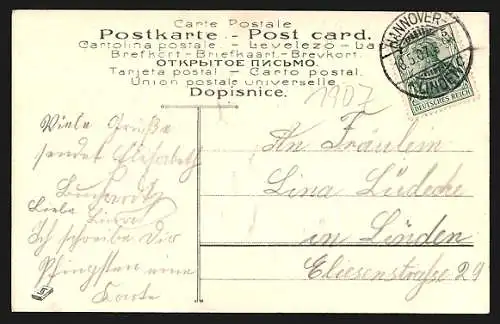 Carte Postale
Postkarte - Post card.
Cartolina postale - Levelező-Lap
Brefkort - Briefkaart - Brevkort.
ОТКРЫТОЕ ПИСЬМО.
Tarjeta postal - Carto postal
Union postale universelle.
Dopisnice.
1907
HANNOVER-
LINDEN
DEUTSCHES REICH
Viele Grüße
sendet Elisabeth
Liebe Lina
Ich schreibe Dir
Pfingsten eine
Karte
An Fräulein
Lina Lüdecke
in Linden
Eliesenstraße 29